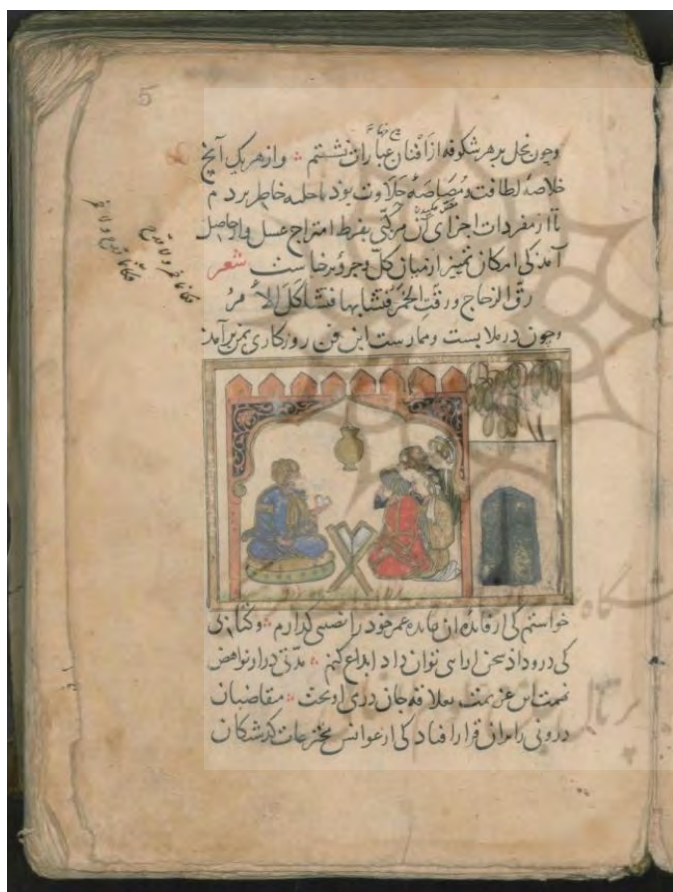 5
وچون نحل بر هر شکوفه از افنان عبارات نشستم وازهر یک آنچ
خلاصهٔ لطافت ومصاصهٔ حلاوت بود باخلیه خاطر بردم
تا از مفردات اجزای آن مرکبی بفرط امتزاج عسل وار حاصل
آمد کی امکان تمییز از میان کل وجزو برخاست شعر
رق الزجاج ورقت الخمر فتشابها فتشاکل الامر
وچون در ملابست وممارست این فن روزکاری بمن برآمد
فکانما خمر ولا قدح
فکانما قدح ولا خمر
خواستم کی از فایده آن عایده عمر خود را نصیبی کذارم وکتابی
کی درو داد سخن ارایی توان داد ابداع کنم مدتی دراز نواهض
همت این عزیمت بعلاقه جان درمی اویخت متقاضیان
درونی را بران قرار افتاد کی از عرایس مخترعات کذشتکان